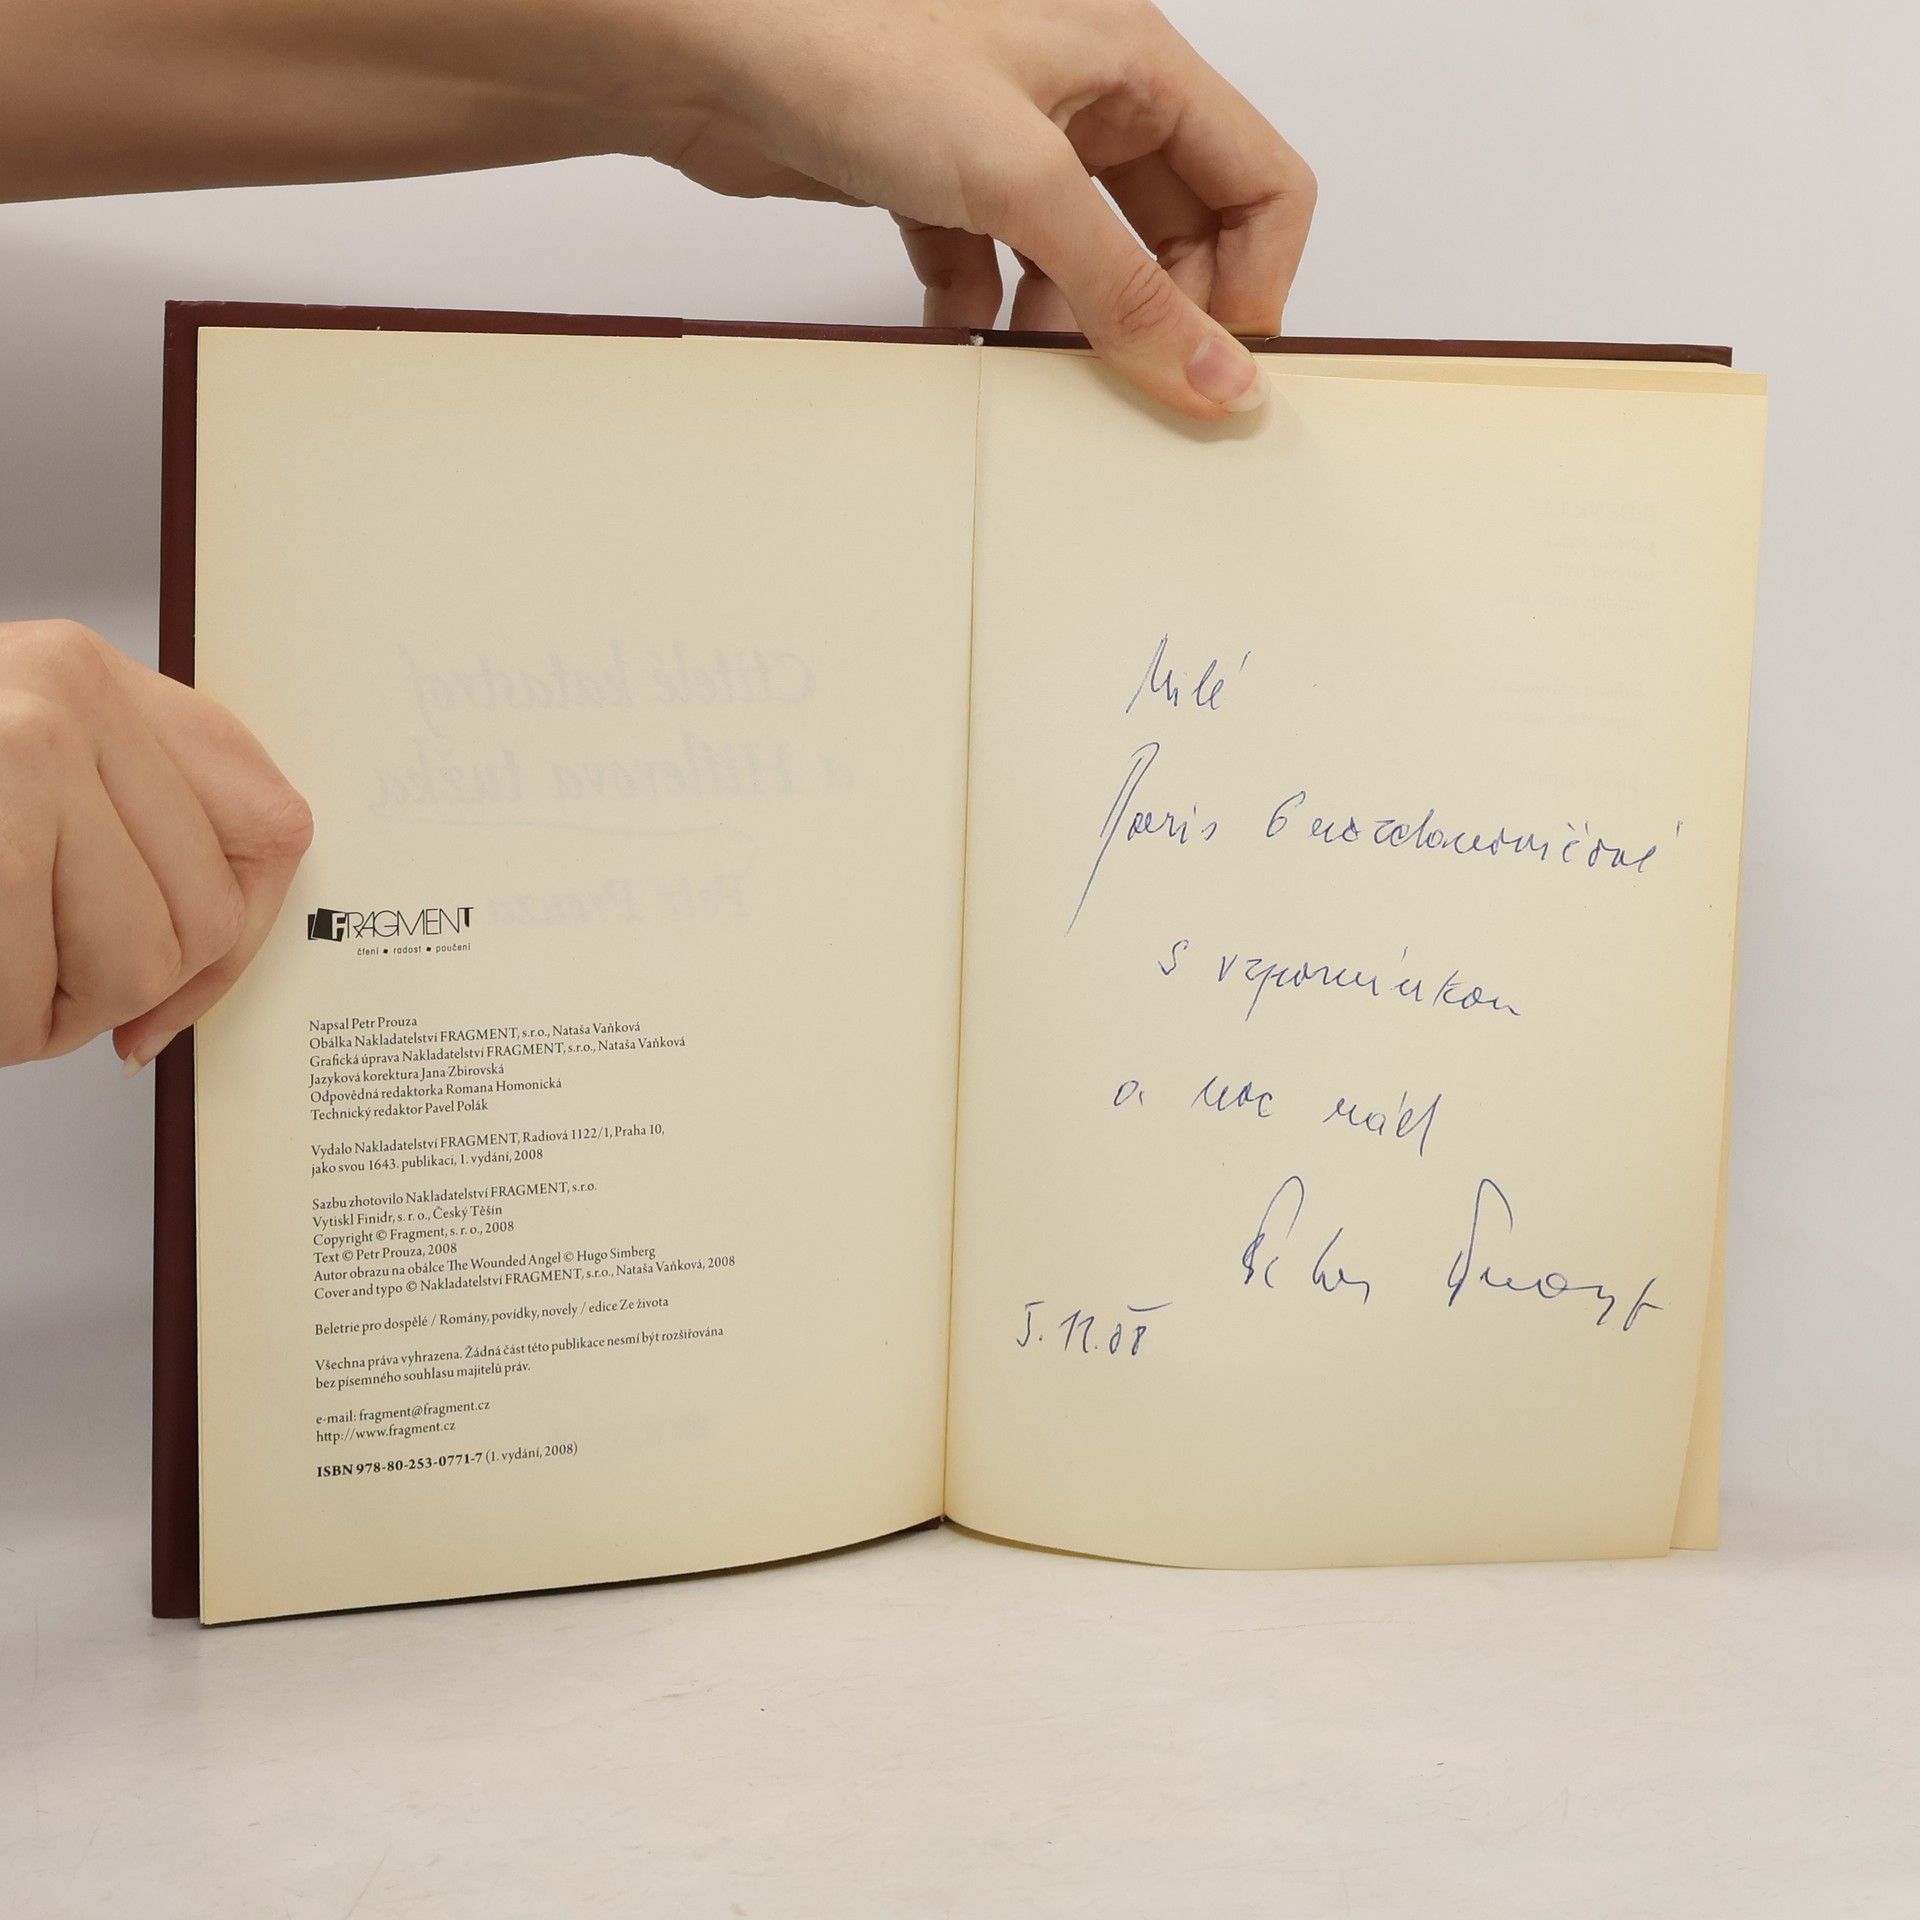 Ctitelé katastrof
a Hitlerova tužka
Petr Prouza
FRAGMENT
čtení ■ radost ■ poučení
Napsal Petr Prouza
Obálka Nakladatelství FRAGMENT, s.r.o., Nataša Vaňková
Grafická úprava Nakladatelství FRAGMENT, s.r.o., Nataša Vaňková
Jazyková korektura Jana Zbirovská
Odpovědná redaktorka Romana Homonická
Technický redaktor Pavel Polák
Vydalo Nakladatelství FRAGMENT, Radiová 1122/1, Praha 10,
jako svou 1643. publikaci, 1. vydání, 2008
Sazbu zhotovilo Nakladatelství FRAGMENT, s.r.o.
Vytiskl Finidr, s. r. o., Český Těšín
Copyright © Fragment, s. r. o., 2008
Text © Petr Prouza, 2008
Autor obrazu na obálce The Wounded Angel © Hugo Simberg
Cover and typo © Nakladatelství FRAGMENT, s.r.o., Nataša Vaňková, 2008
Beletrie pro dospělé / Romány, povídky, novely / edice Ze života
Všechna práva vyhrazena. Žádná část této publikace nesmí být rozšiřována
bez písemného souhlasu majitelů práv.
e-mail: fragment@fragment.cz
http://www.fragment.cz
ISBN 978-80-253-0771-7 (1. vydání, 2008)
Milé
s vzpomínkou
a moc rád
Petr Prouza
5. 11. 08